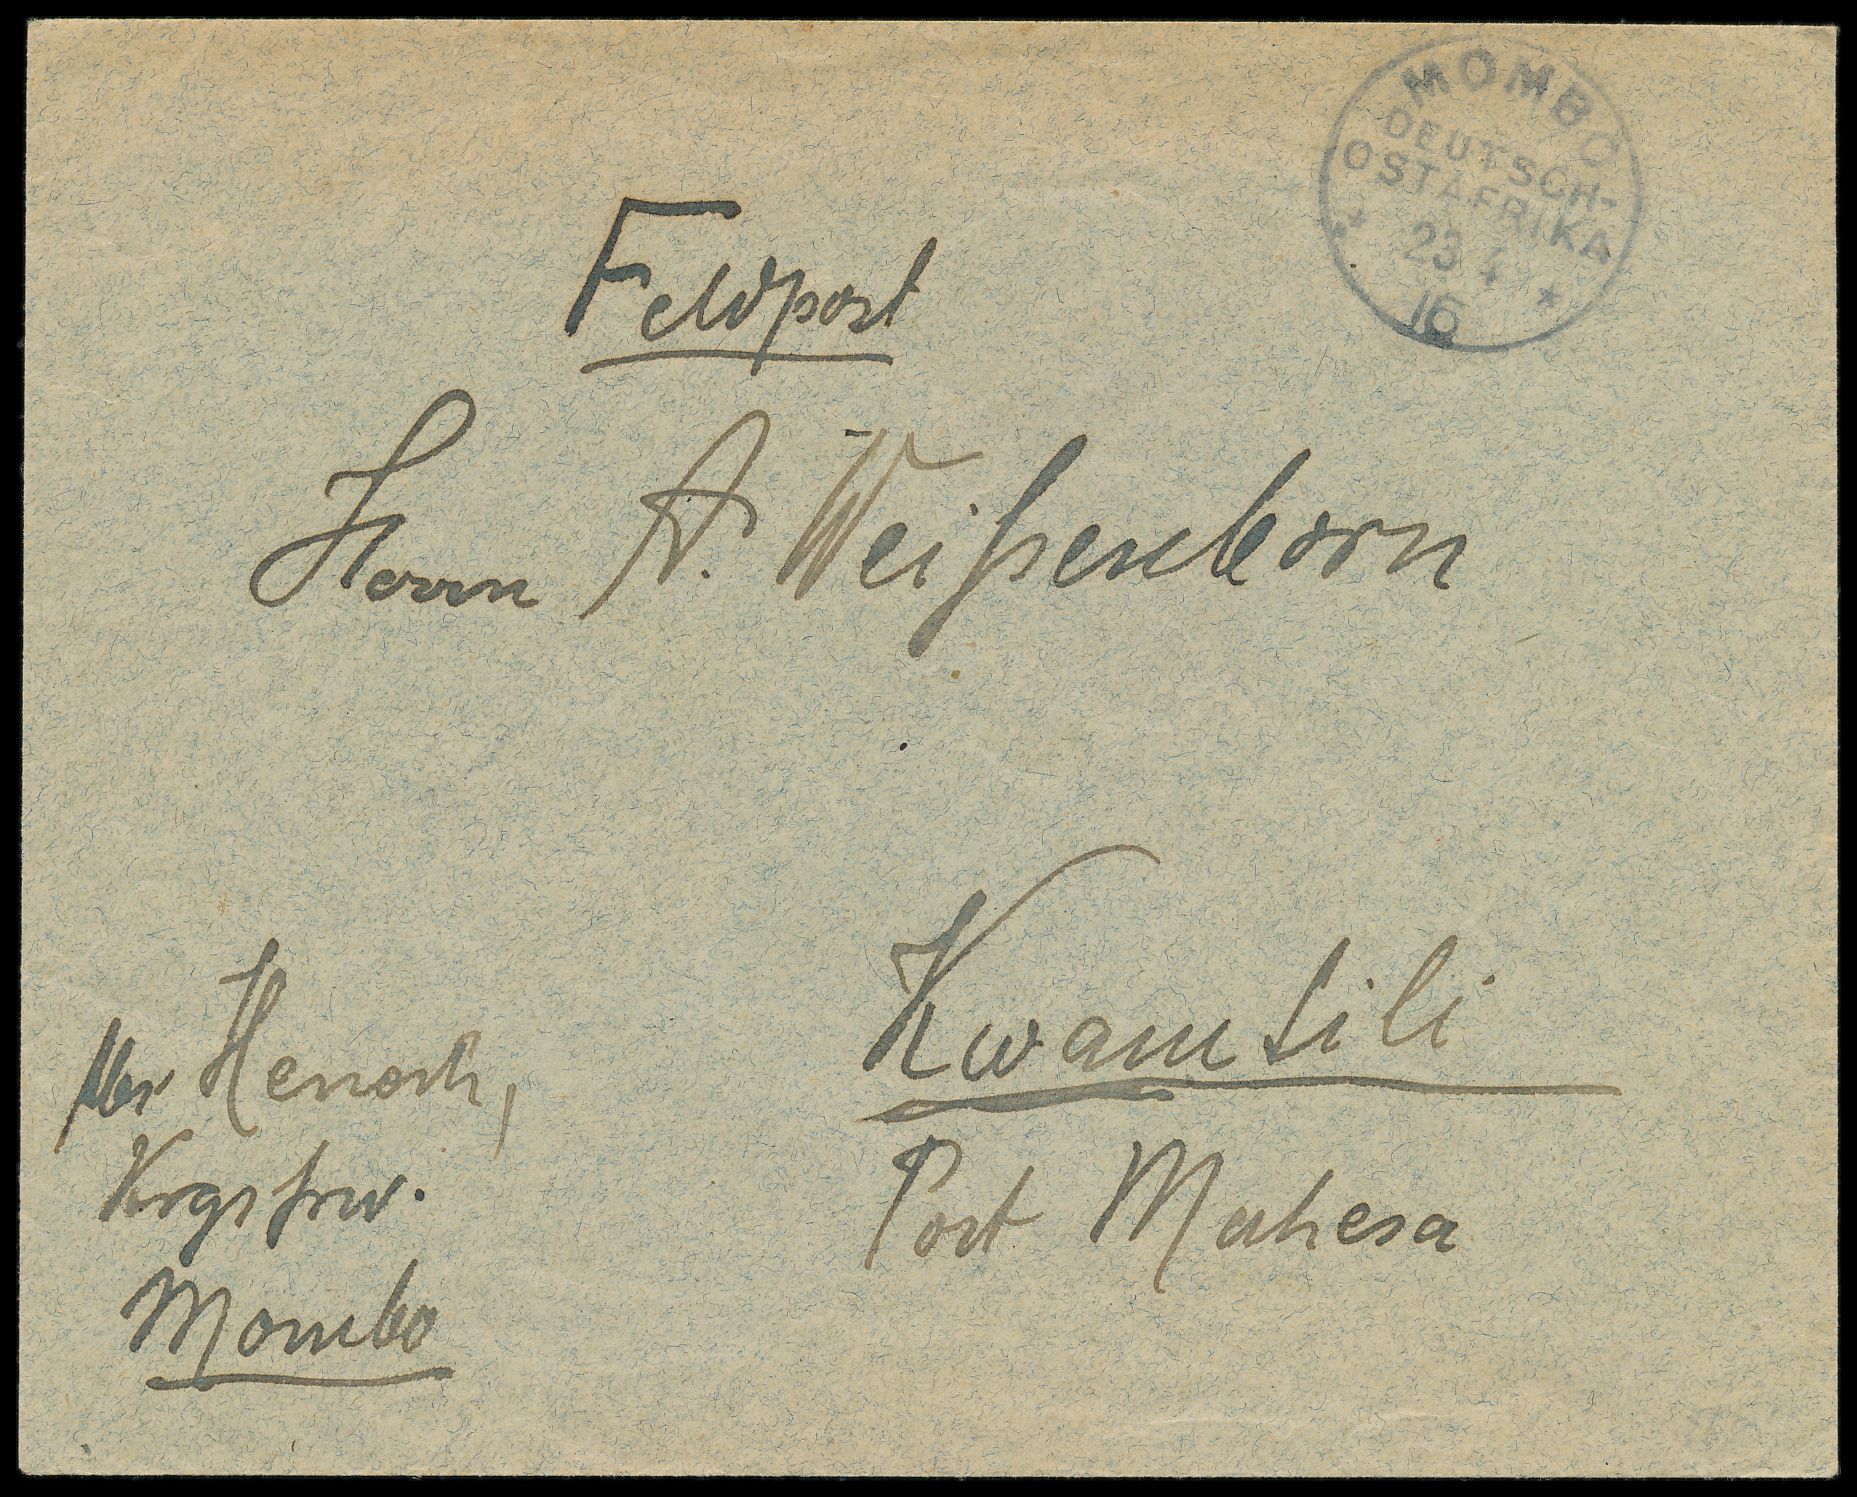 MOMBO
DEUTSCH-
OSTAFRIKA
23 4
16
Feldpost
Herrn A. Weißenborn
Kwamsili
Post Muhesa
Henoch,
Krgsfrw.
Mombo